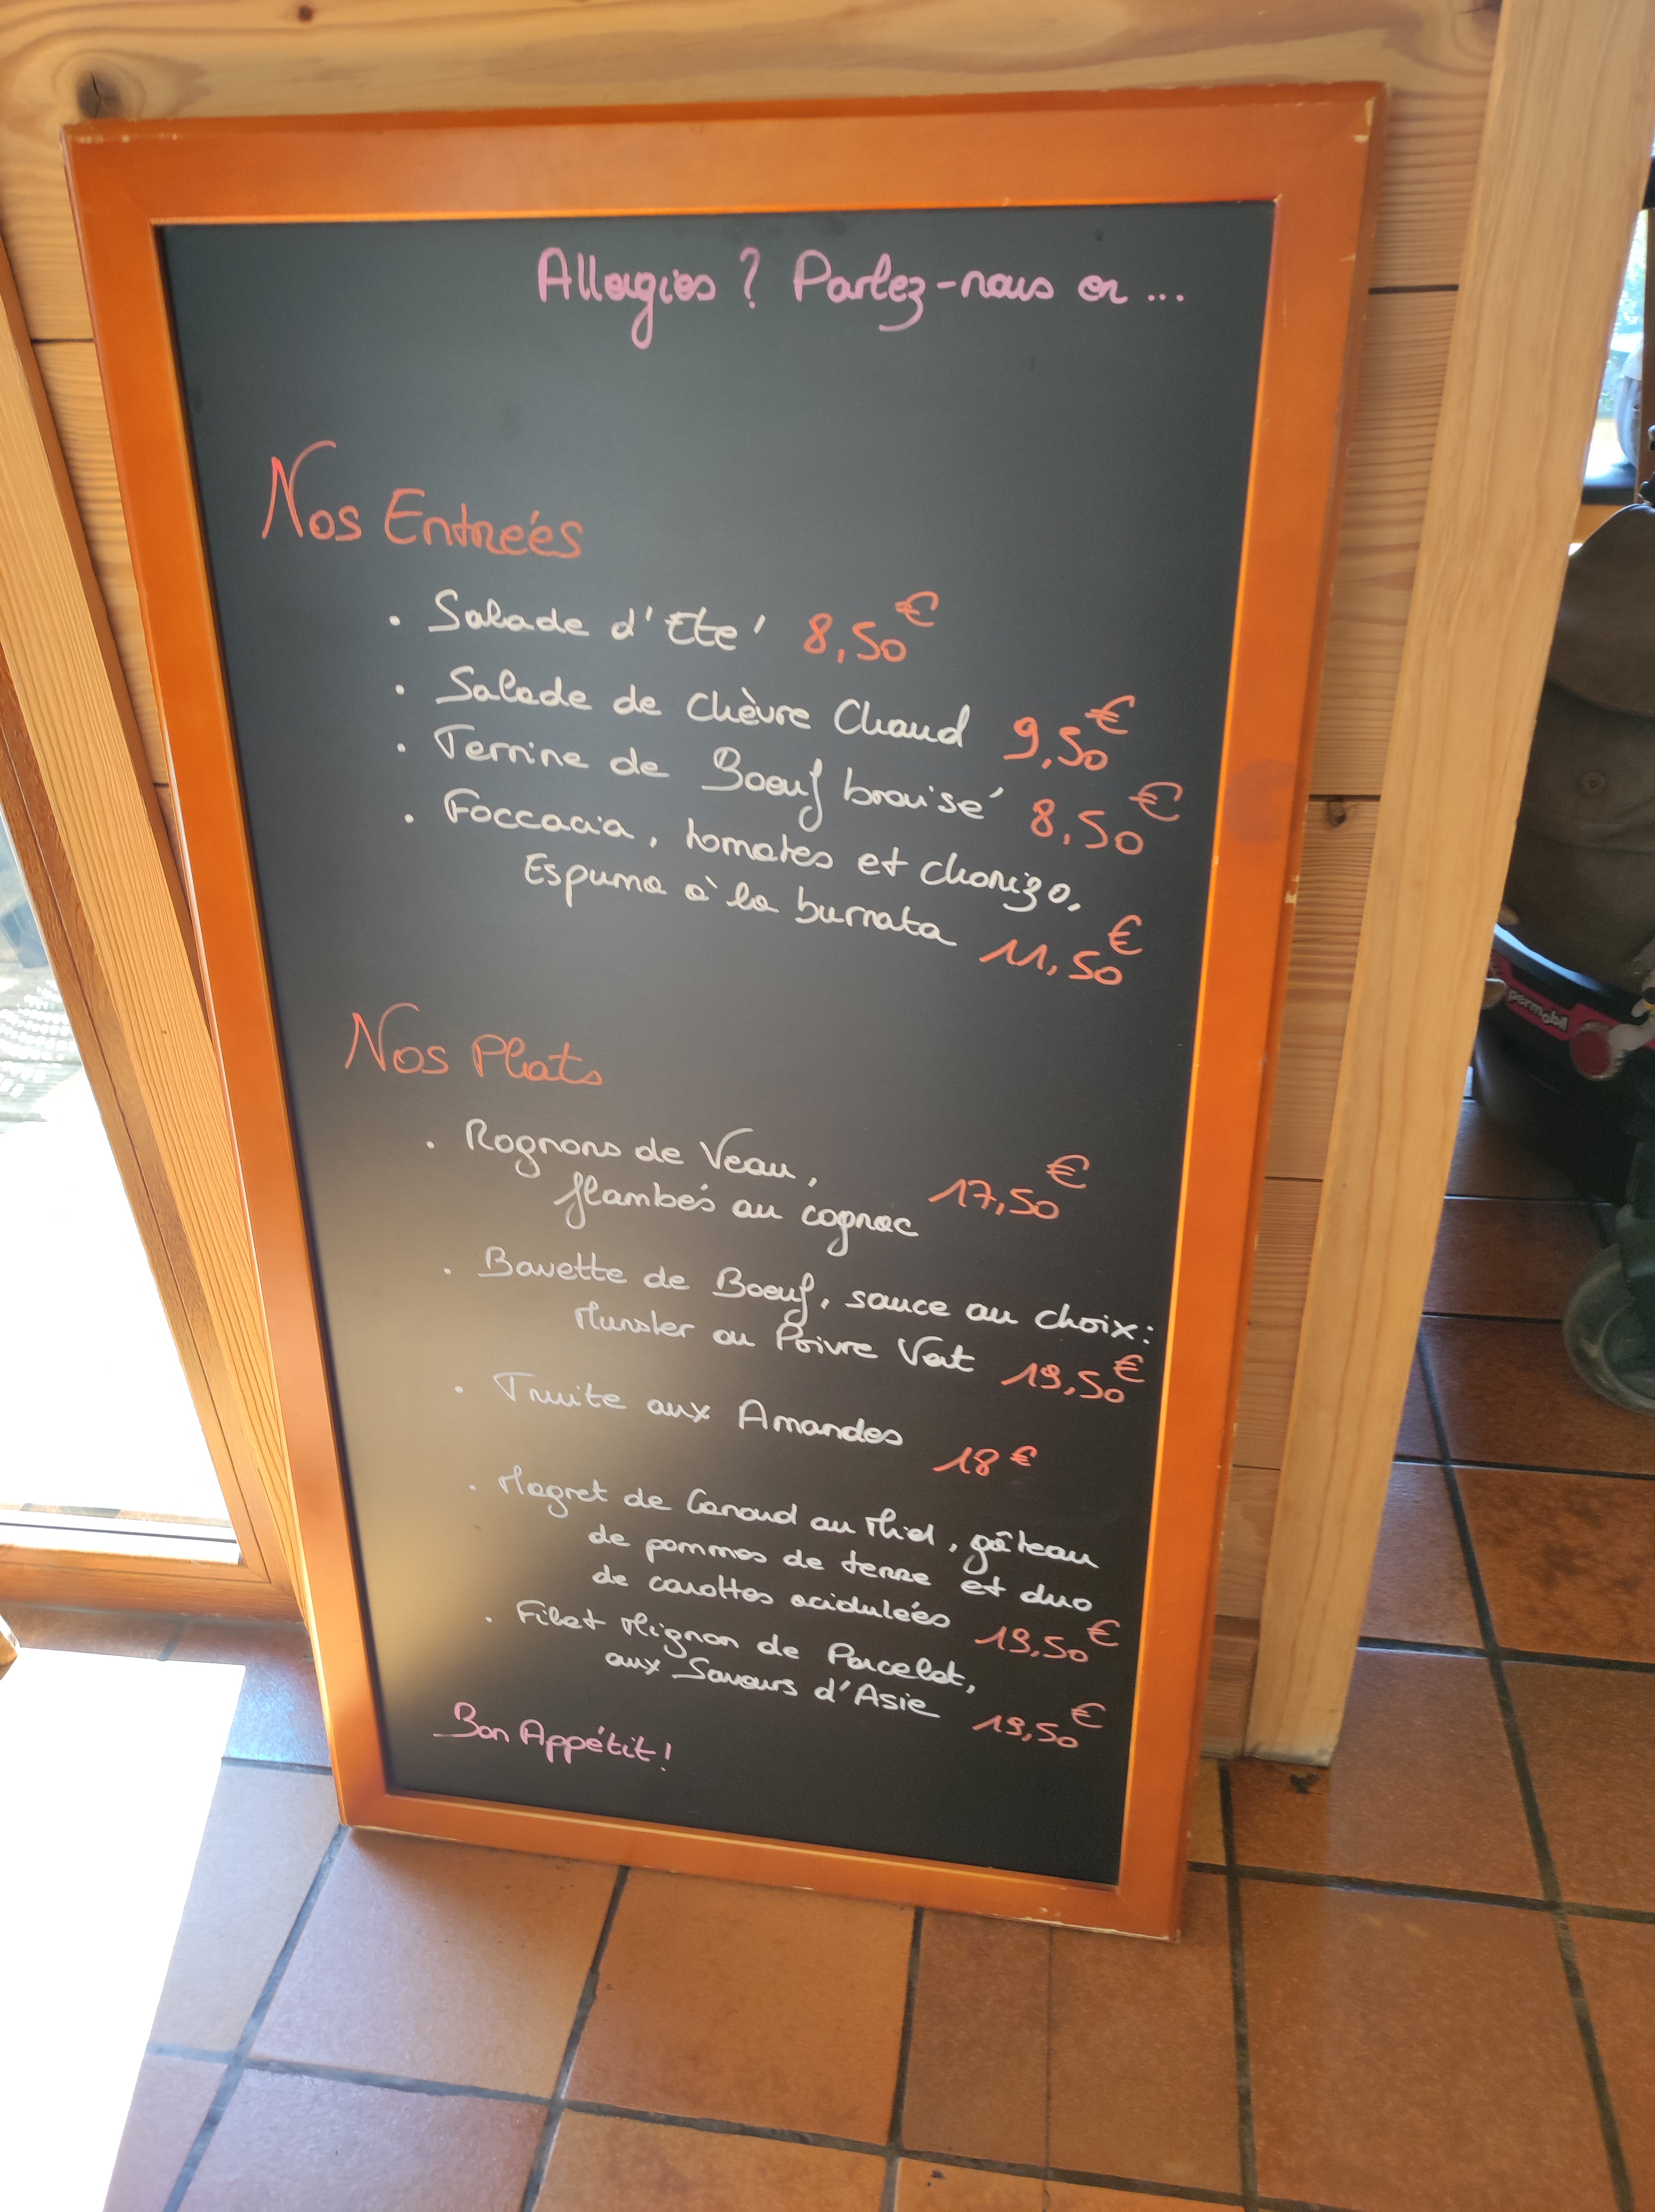 Allergies ? Parlez-nous en ...
Nos Entrées
. Salade d'Eté 8,50€
. Salade de Chèvre Chaud 9,50€
. Terrine de Boeuf braisé 8,50€
. Foccacia, tomates et chorizo,
Espuma à la burrata 11,50€
Nos Plats
. Rognons de Veau,
flambés au cognac 17,50€
. Bavette de Boeuf, sauce au choix:
Munster ou Poivre Vert 19,50€
. Truite aux Amandes 18€
. Magret de Canard au Miel, gâteau
de pommes de terre et duo
de carottes acidulées 19,50€
. Filet Mignon de Porcelet,
aux Saveurs d'Asie 19,50€
Bon Appétit!
permobil